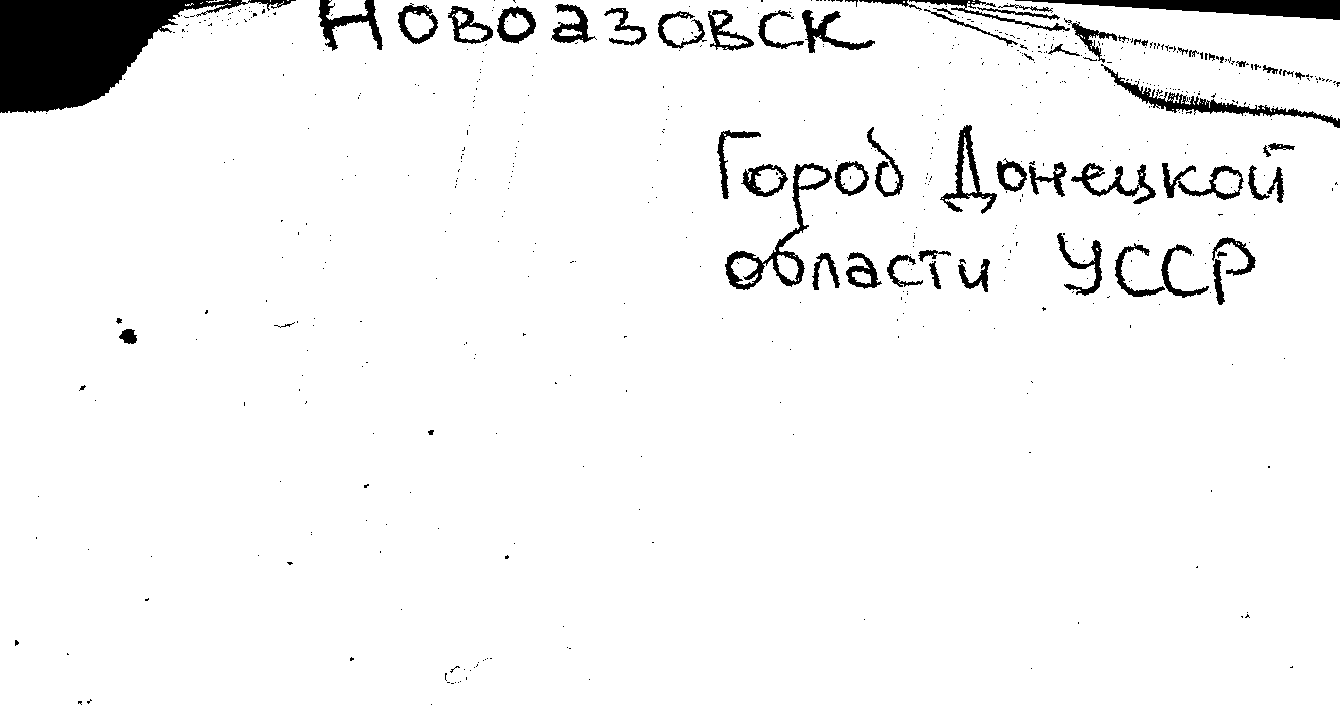 Новоазовск
Город Донецкой
области УССР